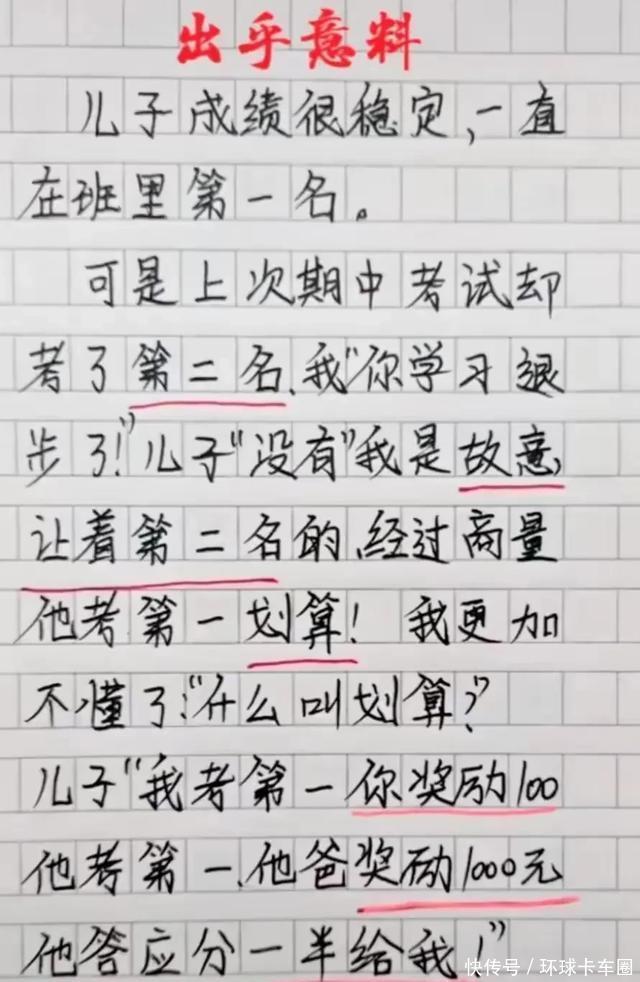 出乎意料
儿子成绩很稳定,一直
在班里第一名。
可是上次期中考试却
考了第二名、我“你学习退
步了!”儿子“没有”我是故意,
让着第二名的、经过商量
他考第一划算! 我更加
不懂了:“什么叫划算?”
儿子“我考第一你奖励100
他考第一、他爸奖励1000元
他答应分一半给我!”
快传号/环球卡车圈